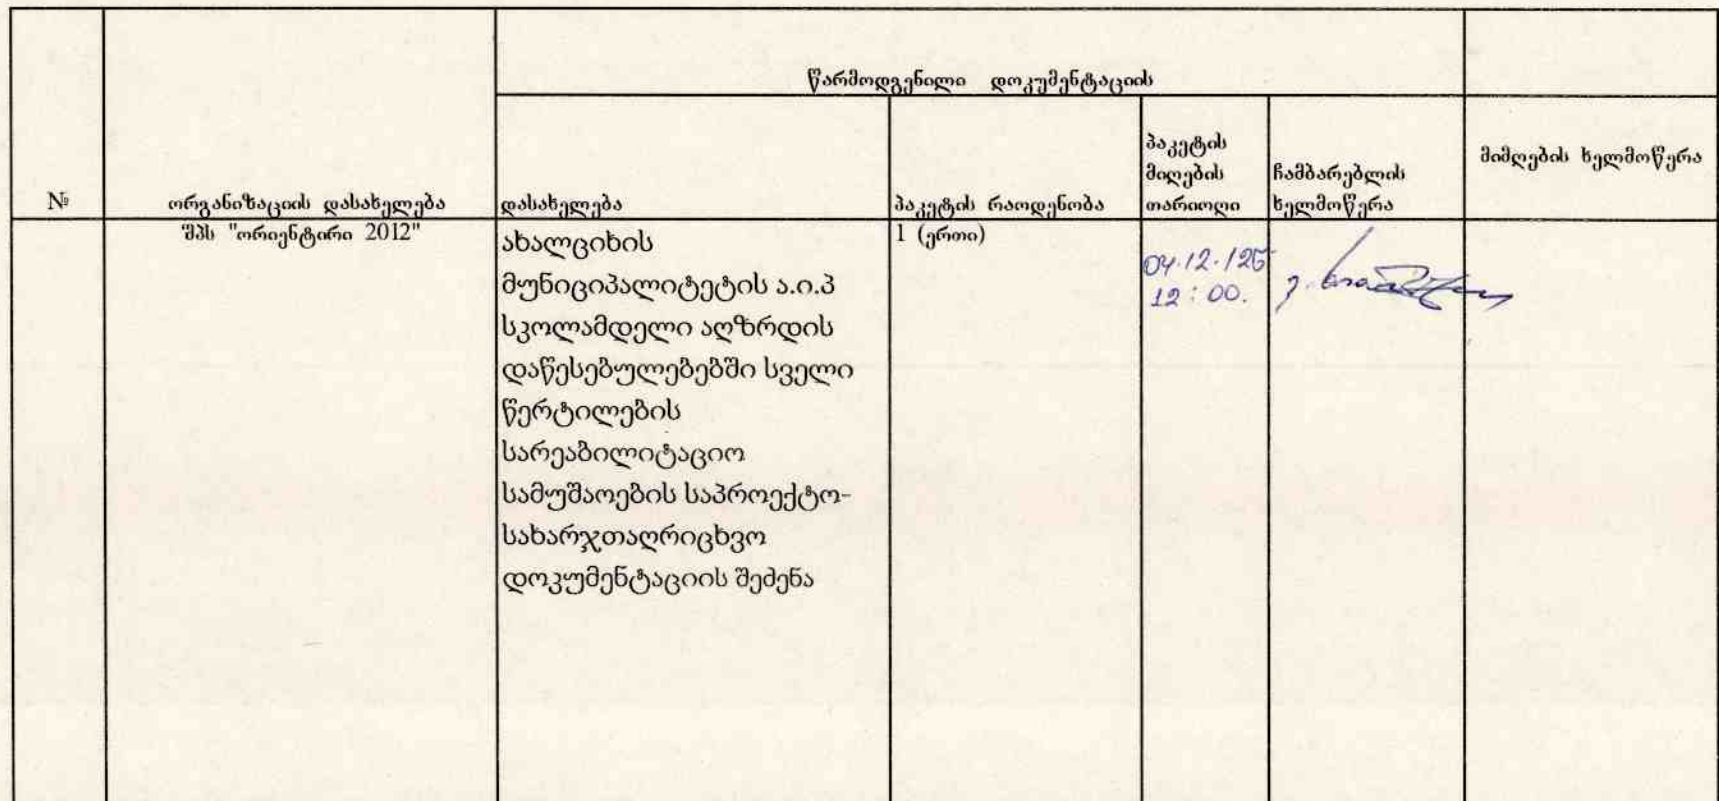 წარმოდგენილი დოკუმენტაციის
№
ორგანიზაციის დასახელება
დასახელება
პაკეტის რაოდენობა
პაკეტის
მიღების
თარიოღი
ჩამბარებლის
ხელმოწერა
მიმღების ხელმოწერა
შპს "ორიენტირი 2012"
ახალციხის
მუნიციპალიტეტის ა.ი.პ
სკოლამდელი აღზრდის
დაწესებულებებში სველი
წერტილების
სარეაბილიტაციო
სამუშაოების საპროექტო-
სახარჯთაღრიცხვო
დოკუმენტაციის შეძენა
1 (ერთი)
04.12.
12:00.